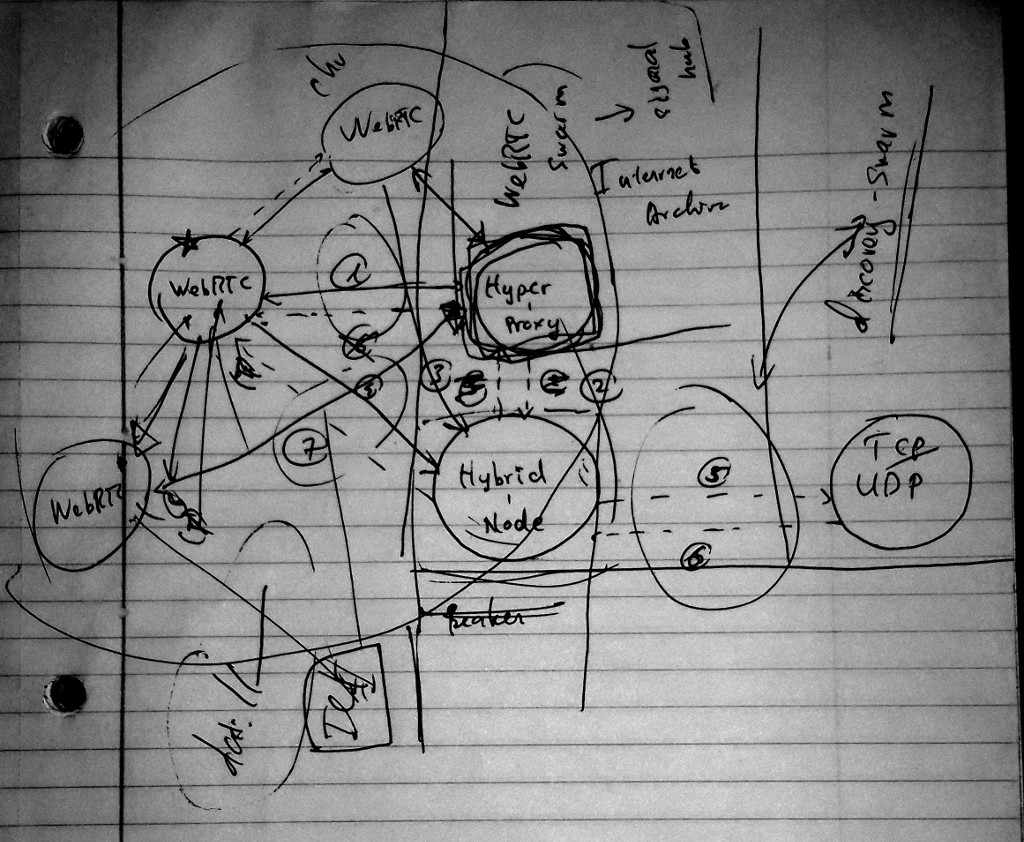 WebRTC
WebRTC
Swarm
signal
hub
Internet
Archive
discovery - Swarm
WebRTC
1
Hyper
-
Proxy
3
2
7
WebRTC
Hybrid
-
Node
5
6
TCP
UDP
dat://